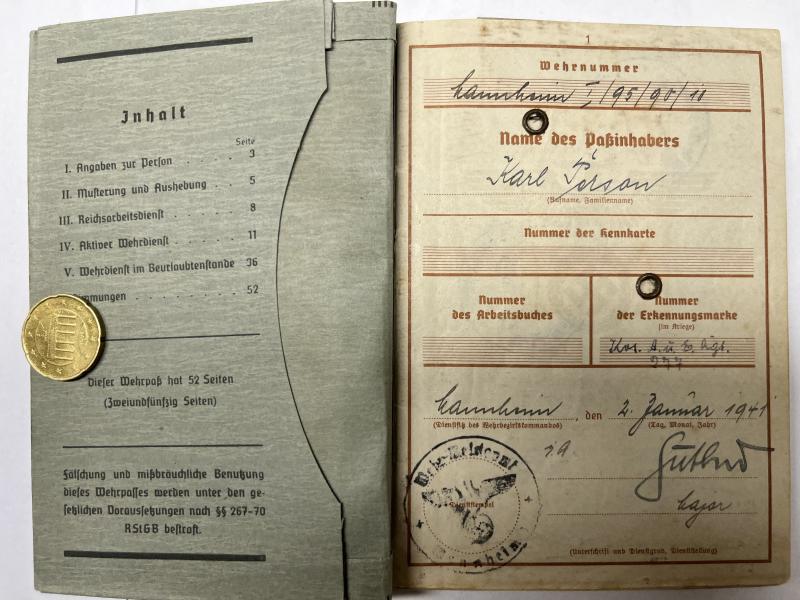 Inhalt
Seite
I. Angaben zur Person . . . . 3
II. Musterung und Aushebung . . . . 5
III. Reichsarbeitsdienst . . . . . 8
IV. Aktiver Wehrdienst . . . . . 11
V. Wehrdienst im Beurlaubtenstande 36
mmungen . . . . . . . 52
Dieser Wehrpaß hat 52 Seiten
(Zweiundfünfzig Seiten)
Fälschung und mißbräuchliche Benutzung
dieses Wehrpasses werden unter den ge-
setzlichen Voraussetzungen nach §§ 267-70
RStGB bestraft.
1
Wehrnummer
Mannheim I/95/90/11
Name des Paßinhabers
Karl Person
(Rufname, Familienname)
Nummer der Kennkarte
Nummer
des Arbeitsbuches
Nummer
der Erkennungsmarke
(im Kriege)
A. u. E.
377
Mannheim, den 2. Januar 1941
(Dienstsitz des Wehrbezirkskommandos)
(Tag, Monat, Jahr)
Wehrmeldeamt
Mannheim
Dienststempel
Major
(Unterschrift und Dienstgrad, Dienststellung)